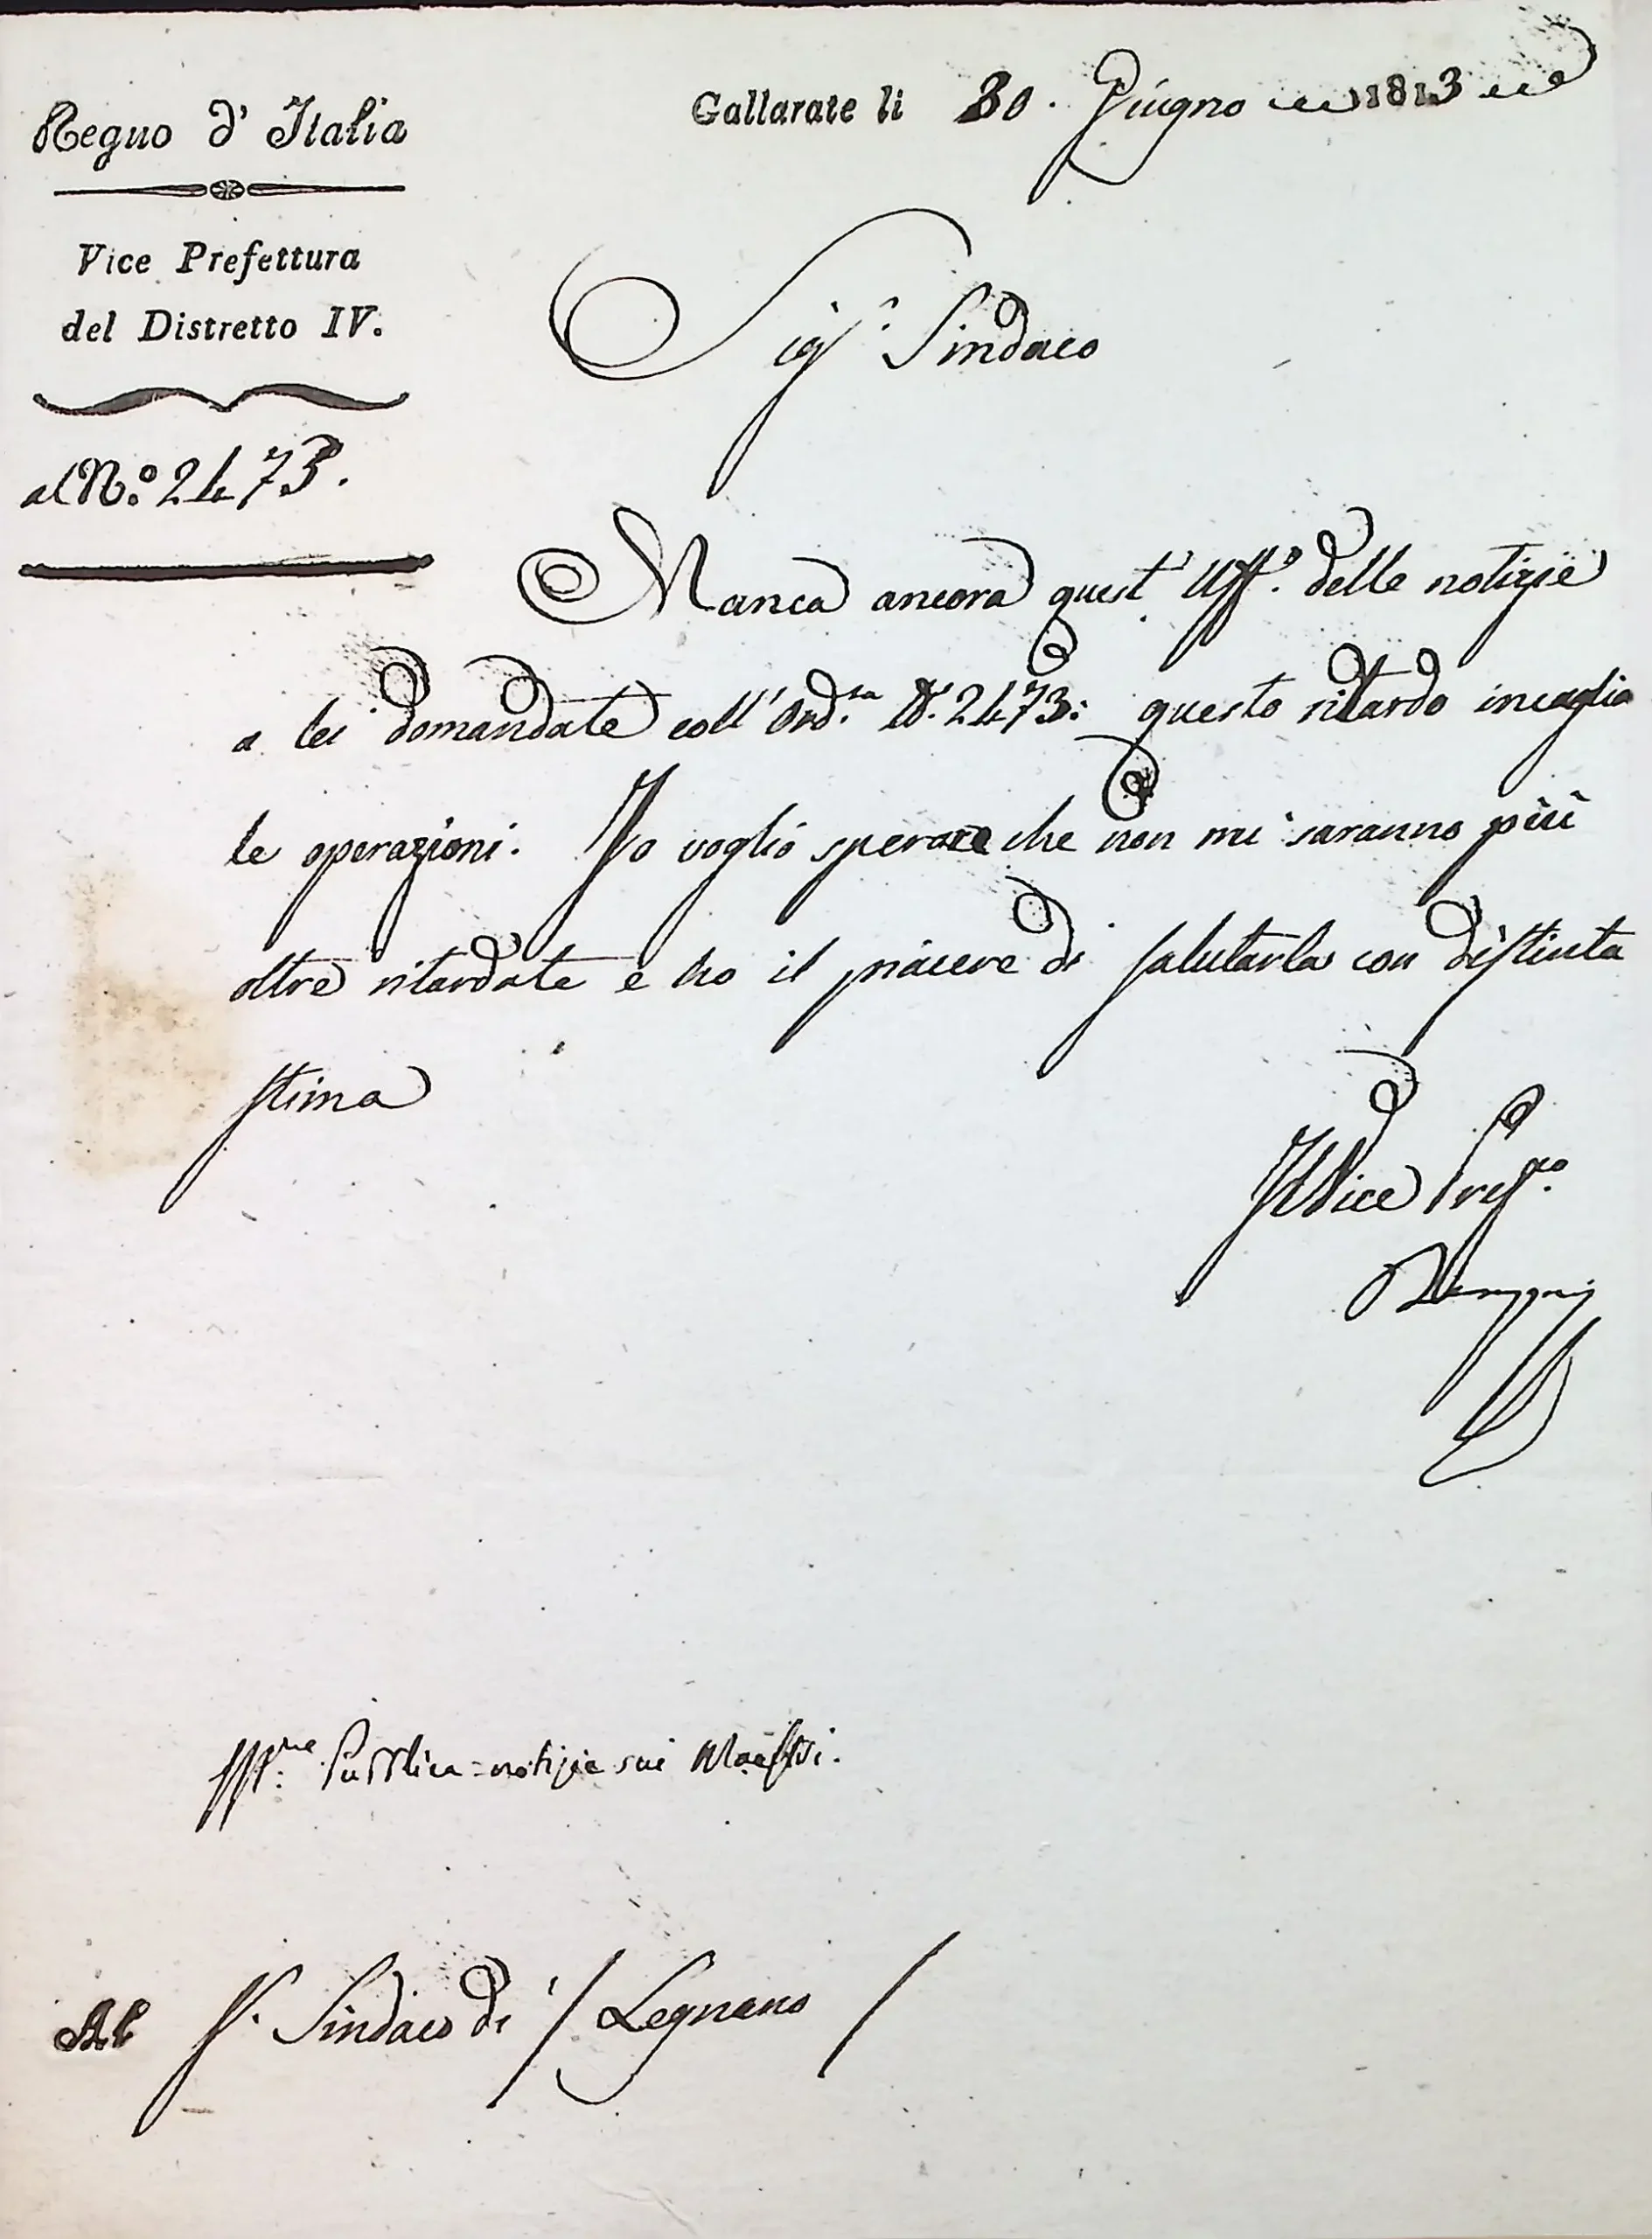 Regno d' Italia
Vice Prefettura
del Distretto IV.
al N.o 2473.
Gallarate li 30. Giugno 1813
Sig.r Sindaco
Manca ancora quest' Uff.o delle notizie
a lei domandate coll' Ord.za N. 2473: questo ritardo incaglia
le operazioni. Io voglio sperare che non mi saranno più
oltre ritardate e ho il piacere di salutarla con distinta
stima
Il Vice Pref.to
Pubblica = notizie sui Maestri.
Al S. Sindaco di / Legnano /